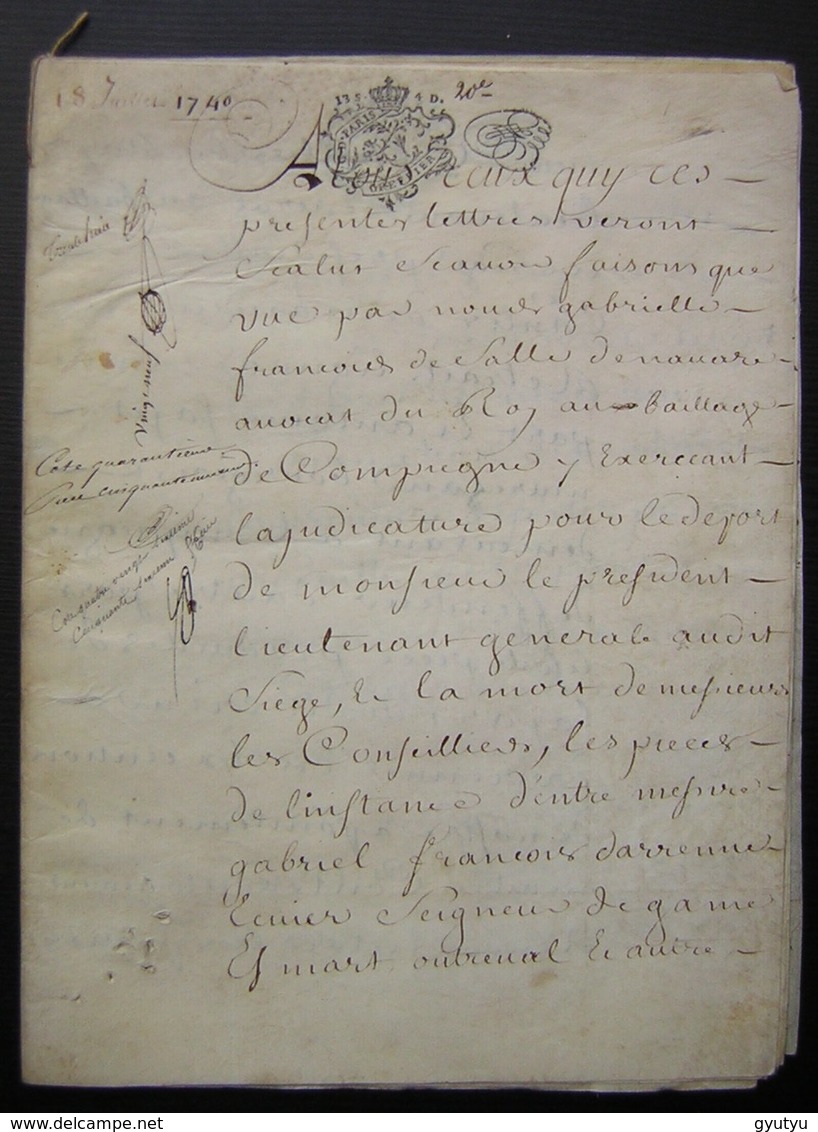 18 Juillet 1740
135 4 D. 20e
G.D. PARIS
A tous ceux quy ces
presentes lettres veront
Salut Scavoir faisons que
vue par nous gabrielle
francois de Salle de navare
avocat du Roy au baillage
de Compiegne y Exerceant
la judicature pour le deport
de monsieur le president
lieutenant general audit
Siege, Et la mort de messieurs
les Conseilliers, les pieces
de l'instance d'entre messire
gabriel francois darrenne
Ecuier Seigneur de game
Es mart outreval Et autre
vingt neuf
Cote quarantieme
Piece cinquante
Cote quatre vingt
Cinquante
www.delcampe.net
gyutyu